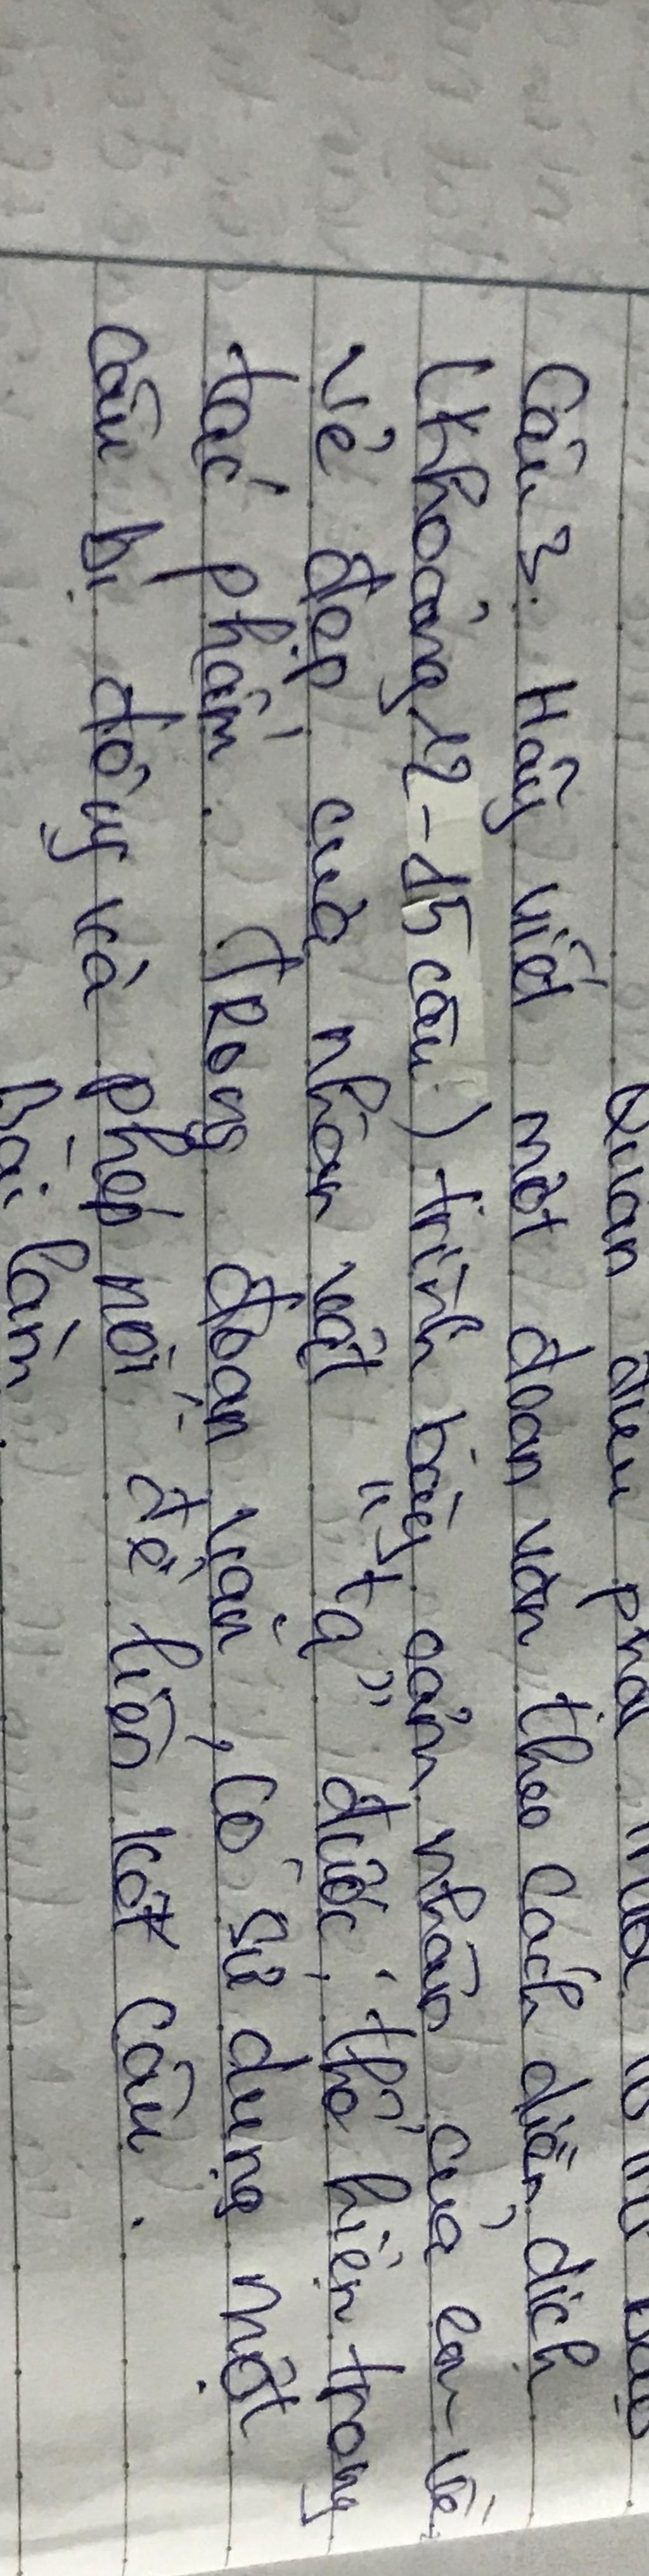 Quan điểm phải
Câu 3. Hãy viết một đoạn văn theo cách diễn dịch
(khoảng 12-15 câu) trình bày cảm nhận của em về
vẻ đẹp của nhân vật "ta" được thể hiện trong
tác phẩm. Trong đoạn văn, có sử dụng một
câu bị động và phép nối để liên kết câu.
Bài làm